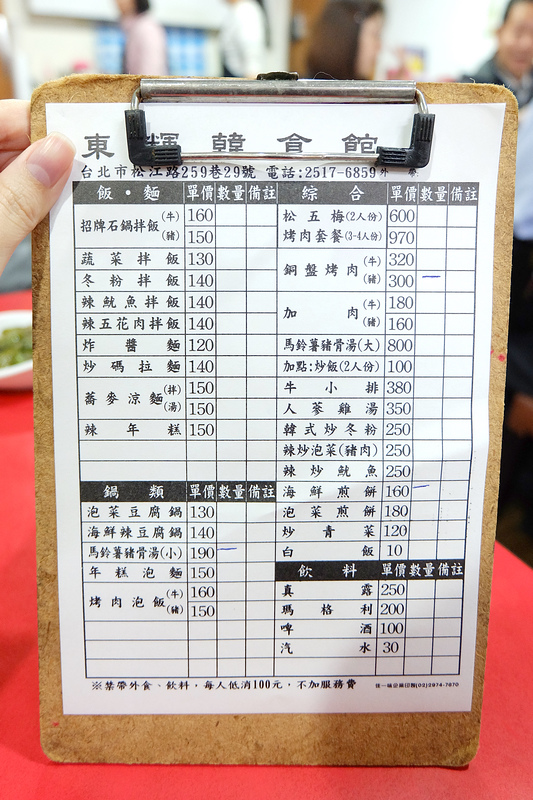 東輝韓食館
台北市松江路259巷29號 電話:2517-6859
飯・麵 單價 數量 備註
招牌石鍋拌飯(牛) 160
(豬) 150
蔬菜拌飯 130
冬粉拌飯 140
辣魷魚拌飯 140
辣五花肉拌飯 140
炸醬麵 120
炒碼拉麵 140
蕎麥涼麵(拌) 150
(湯) 150
辣年糕 150
鍋類 單價 數量 備註
泡菜豆腐鍋 130
海鮮辣豆腐鍋 140
馬鈴薯豬骨湯(小) 190
年糕泡麵 150
烤肉泡飯(牛) 160
(豬) 150
綜合 單價 數量 備註
松五梅(2人份) 600
烤肉套餐(3-4人份) 970
銅盤烤肉(牛) 320
(豬) 300
加肉(牛) 180
(豬) 160
馬鈴薯豬骨湯(大) 800
加點:炒飯(2人份) 100
牛小排 380
人蔘雞湯 350
韓式炒冬粉 250
辣炒泡菜(豬肉) 250
辣炒魷魚 250
海鮮煎餅 160
泡菜煎餅 180
炒青菜 120
白飯 10
飲料 單價 數量 備註
真露 250
瑪格利 200
啤酒 100
汽水 30
※禁帶外食、飲料，每人低消100元，不加服務費
(02)2974-7670